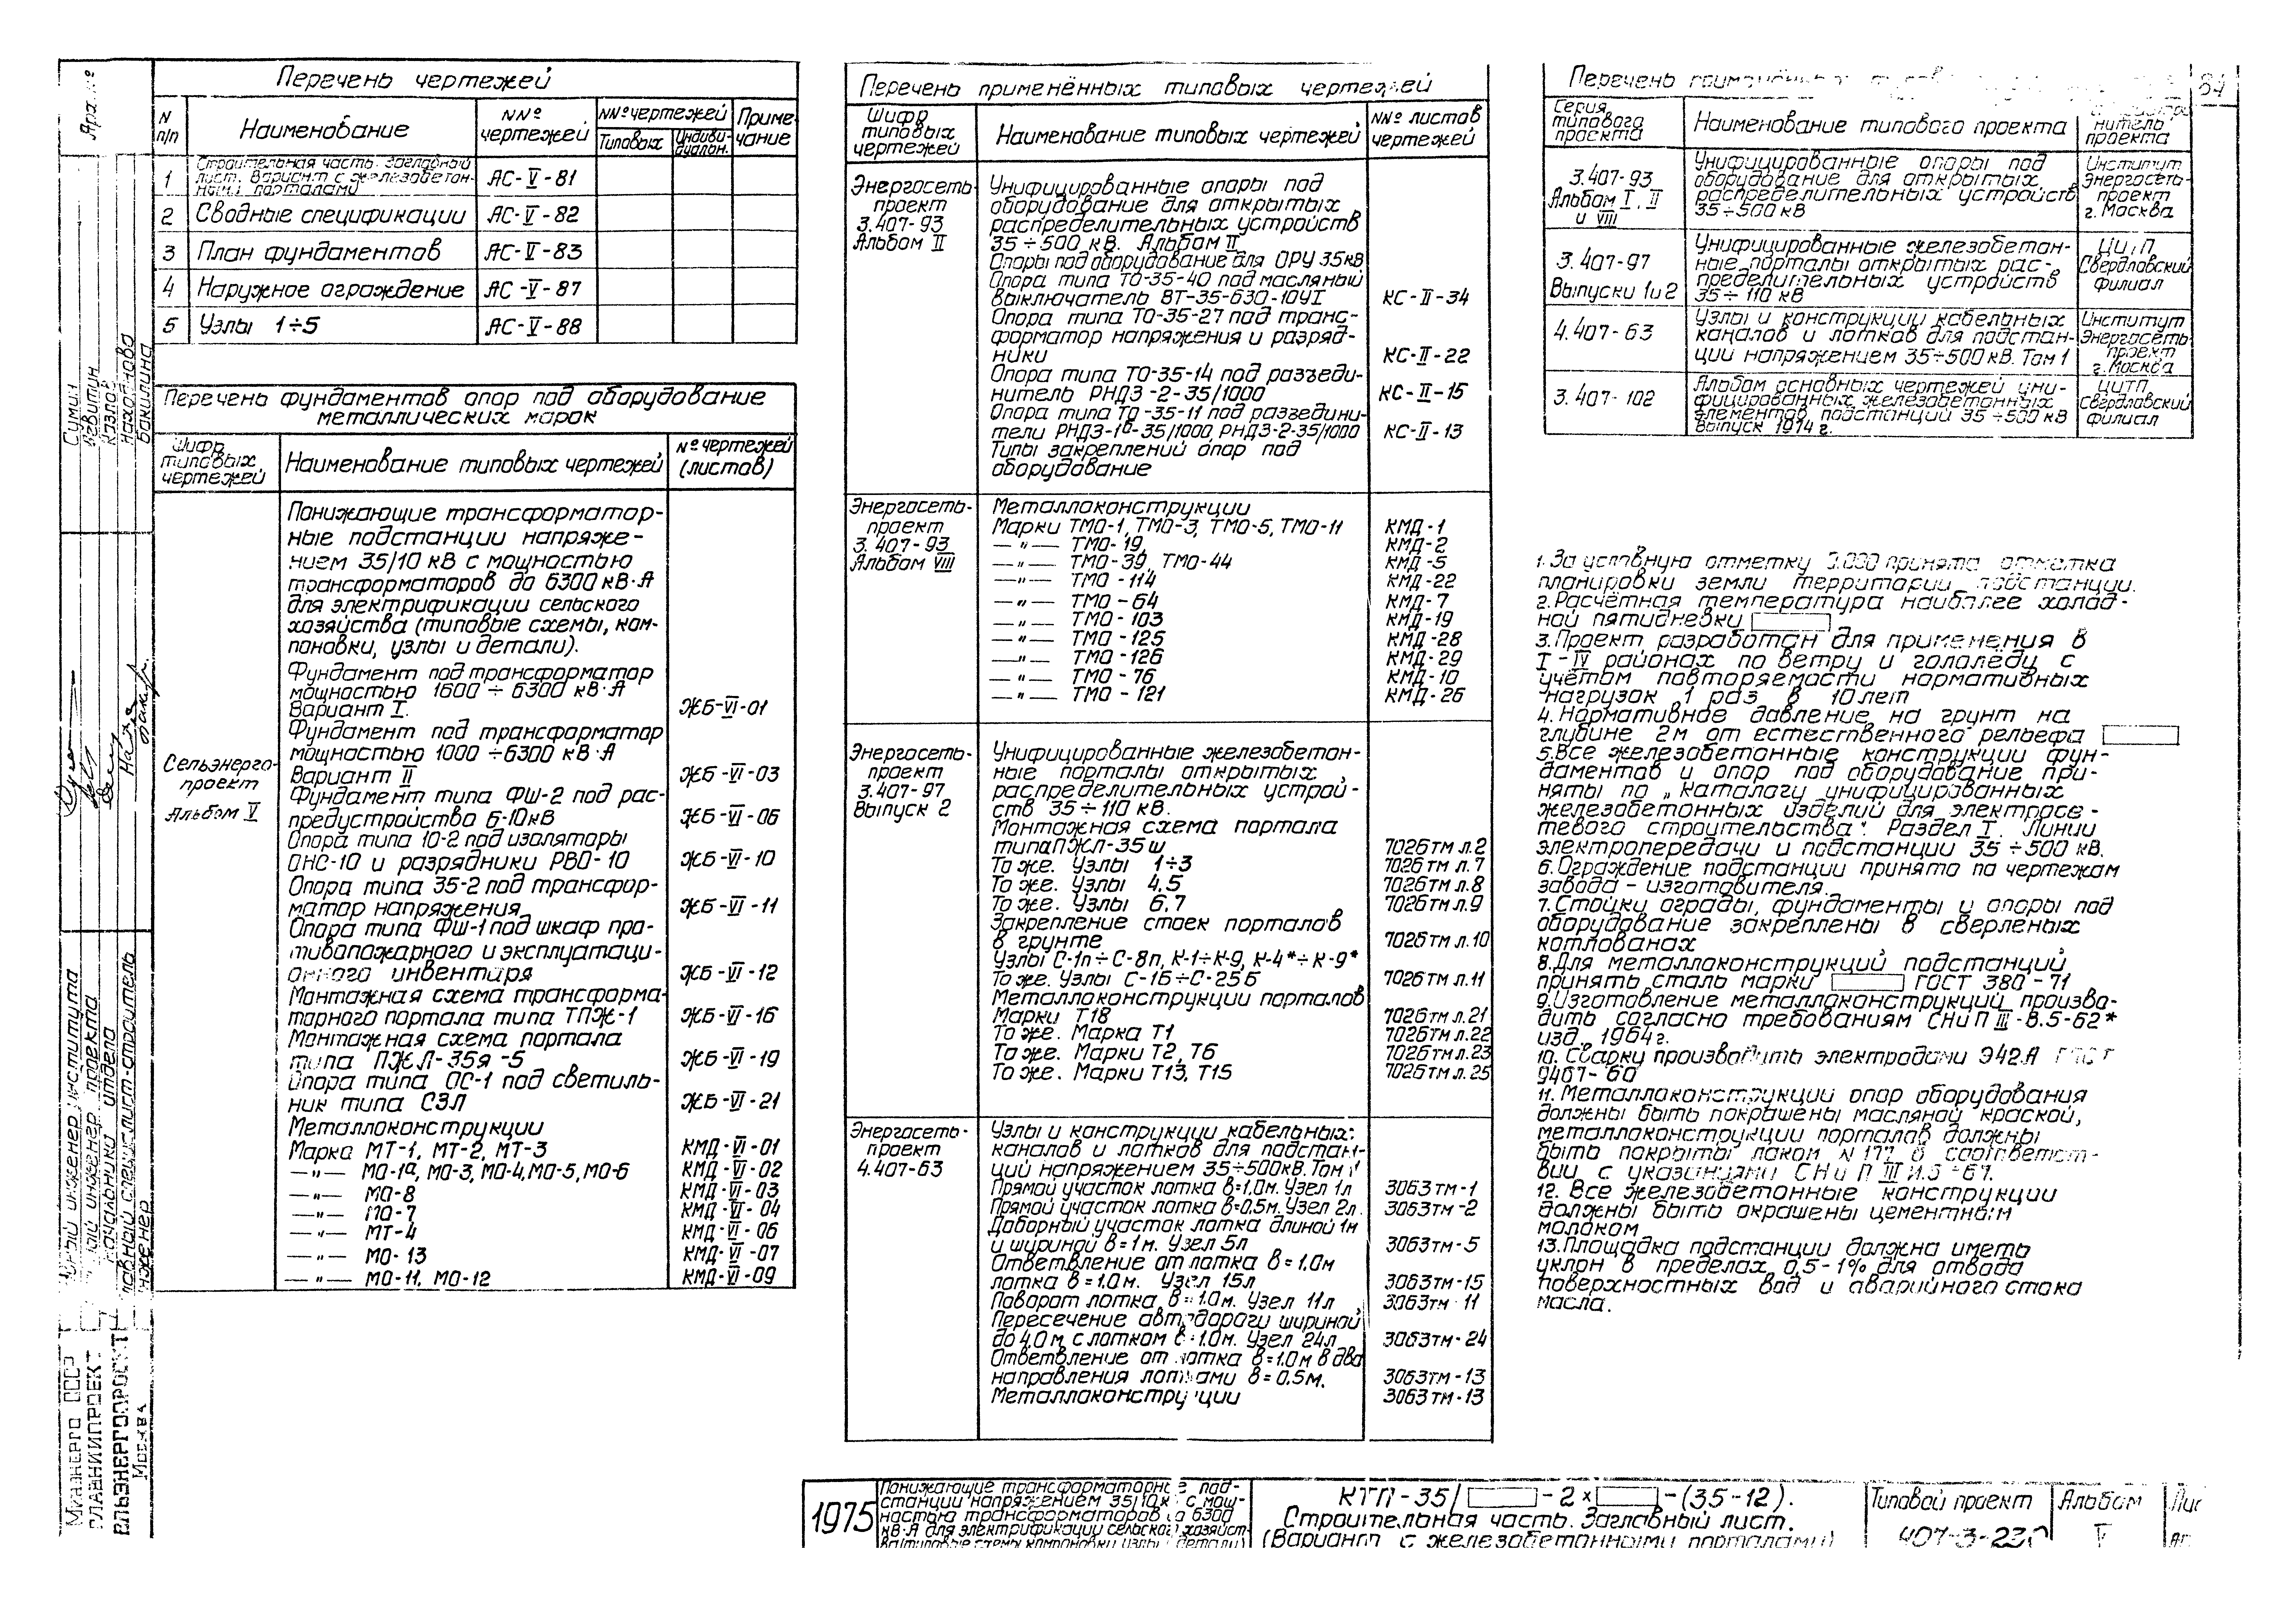 Перечень чертежей
N п/п
Наименование
NNº чертежей
NNº чертежей
Типовых
Индиви-
дуальн.
Приме-
чание
1
Строительная часть. Заглавный
лист. Вариант с железобетон-
ными порталами
АС-V-81
2 Сводные спецификации АС-V-82
3 План фундаментов АС-V-83
4 Наружное ограждение АС-V-87
5 Узлы 1÷5 АС-V-88
Перечень фундаментов опор под оборудование
металлических марок
Шифр
типовых
чертежей
Наименование типовых чертежей
Nº чертежей
(листов)
Сельэнерго-
проект
Альбом V
Понижающие трансформатор-
ные подстанции напряже-
нием 35/10 кВ с мощностью
трансформаторов до 6300 кВ·А
для электрификации сельского
хозяйства (типовые схемы, ком-
поновки, узлы и детали).
Фундамент под трансформатор
мощностью 1600 ÷ 6300 кВ·А
Вариант I. ЖБ-VI-01
Фундамент под трансформатор
мощностью 1000 ÷6300 кВ·А
Вариант II ЖБ-VI-03
Фундамент типа ФШ-2 под рас-
предустройство 6-10кВ ЖБ-VI-06
Опора типа 10-2 под изоляторы
ОНС-10 и разрядники РВО-10 ЖБ-VI-10
Опора типа 35-2 под трансфор-
матор напряжения ЖБ-VI-11
Опора типа ФШ-1 под шкаф про-
тивопожарного и эксплуатаци-
онного инвентаря ЖБ-VI-12
Монтажная схема трансформа-
торного портала типа ТПЖ-1 ЖБ-VI-16
Монтажная схема портала
типа ПЖЛ-35я-5 ЖБ-VI-19
Опора типа ОС-1 под светиль-
ник типа СЗЛ ЖБ-VI-21
Металлоконструкции
Марка МТ-1, МТ-2, МТ-3 КМД-VI-01
—"— МО-1а, МО-3, МО-4, МО-5, МО-6 КМД-VI-02
—"— МО-8 КМД-VI-03
—"— МО-7 КМД-VI-04
—"— МТ-4 КМД-VI-06
—"— МО-13 КМД-VI-07
—"— МО-11, МО-12 КМД-VI-09
Перечень применённых типовых чертежей
Шифр
типовых
чертежей
Наименование типовых чертежей
NNº листов
чертежей
Энергосеть-
проект
3.407-93
Альбом II
Унифицированные опоры под
оборудование для открытых
распределительных устройств
35÷500 кВ. Альбом II
Опоры под оборудование для ОРУ 35кВ
Опора типа ТО-35-40 под масляный
выключатель ВТ-35-630-10УI КС-II-34
Опора типа ТО-35-27 под транс-
форматор напряжения и разряд-
ники КС-II-22
Опора типа ТО-35-14 под разъеди-
нитель РНДЗ-2-35/1000 КС-II-15
Опора типа ТО-35-11 под разъедини-
тели РНДЗ-1б-35/1000, РНДЗ-2-35/1000 КС-II-13
Типы закреплений опор под
оборудование
Энергосеть-
проект
3.407-93
Альбом VIII
Металлоконструкции
Марки ТМО-1, ТМО-3, ТМО-5, ТМО-11 КМД-1
—"— ТМО-19 КМД-2
—"— ТМО-39, ТМО-44 КМД-5
—"— ТМО-114 КМД-22
—"— ТМО-64 КМД-7
—"— ТМО-103 КМД-19
—"— ТМО-125 КМД-28
—"— ТМО-126 КМД-29
—"— ТМО-76 КМД-10
—"— ТМО-121 КМД-26
Энергосеть-
проект
3.407-97
Выпуск 2
Унифицированные железобетон-
ные порталы открытых
распределительных устрой-
ств 35÷110 кВ.
Монтажная схема портала
типа ПЖЛ-35ш 7026тм л.2
То же. Узлы 1÷3 7026тм л.7
То же. Узлы 4,5 7026тм л.8
То же. Узлы 6,7 7026тм л.9
Закрепление стоек порталов
в грунте 7026тм л.10
Узлы С-1п÷С-8п, К-1÷К-9, К-4*÷К-9*
То же. Узлы С-1б÷С-25б 7026тм л.11
Металлоконструкции порталов
Марки Т18 7026тм л.21
То же. Марка Т1 7026тм л.22
То же. Марки Т2, Т6 7026тм л.23
То же. Марки Т13, Т15 7026тм л.25
Энергосеть-
проект
4.407-63
Узлы и конструкции кабельных
каналов и лотков для подстан-
ций напряжением 35÷500кВ. Том 1
Прямой участок лотка в=1,0м. Узел 1л 3063тм-1
Прямой участок лотка в=0,5м. Узел 2л. 3063тм-2
Доборный участок лотка длиной 1м
и шириной в=1м. Узел 5л 3063тм-5
Ответвление от лотка в=1.0м
лотка в=1.0м. Узел 15л 3063тм-15
Поворот лотка в=1.0м. Узел 11л 3063тм-11
Пересечение автодороги шириной
до 4.0м с лотком в=1.0м. Узел 24л 3063тм-24
Ответвление от лотка в=1.0м в два
направления лотками в=0.5м. 3063тм-13
Металлоконструкции 3063тм-13
Перечень
Серия
типового
проекта
Наименование типового проекта
нитель
проекта
3.407-93
Альбом I, II
и VIII
Унифицированные опоры под
оборудование для открытых
распределительных устройств
35÷500 кВ
Институт
Энергосеть-
проект
г. Москва
3.407-97
Выпуски 1и2
Унифицированные железобетон-
ные порталы открытых рас-
пределительных устройств
35÷110 кВ
ЦИТП
Свердловский
филиал
4.407-63
Узлы и конструкции кабельных
каналов и лотков для подстан-
ций напряжением 35÷500 кВ. Том 1
Институт
Энергосеть-
проект
г. Москва
3.407-102
Альбом основных чертежей уни-
фицированных железобетонных
элементов подстанций 35÷500 кВ
Выпуск 1974г.
ЦИТП
Свердловский
филиал
1. За условную отметку 0.000 принята отметка
планировки земли территории подстанции.
2. Расчётная температура наиболее холод-
ной пятидневки
3. Проект разработан для применения в
I-IV районах по ветру и гололёду с
учётом повторяемости нормативных
нагрузок 1 раз в 10 лет
4. Нормативное давление на грунт на
глубине 2м от естественного рельефа
5. Все железобетонные конструкции фун-
даментов и опор под оборудование при-
няты по „Каталогу унифицированных
железобетонных изделий для электросе-
тевого строительства". Раздел I. Линии
электропередачи и подстанции 35÷500 кВ.
6. Ограждение подстанции принято по чертежам
завода-изготовителя.
7. Стойки ограды, фундаменты и опоры под
оборудование закреплены в сверленых
котлованах
8. Для металлоконструкций подстанций
принять сталь марки ГОСТ 380-71
9. Изготовление металлоконструкций произво-
дить согласно требованиям СНиП III-В.5-62*
изд. 1964г.
10. Сварку производить электродами Э42А ГОСТ
9467-60
11. Металлоконструкции опор оборудования
должны быть покрашены масляной краской,
металлоконструкции порталов должны
быть покрыты лаком N 177 в соответст-
вии с указаниями СНиП III И.5-67.
12. Все железобетонные конструкции
должны быть окрашены цементным
молоком
13. Площадка подстанции должна иметь
уклон в пределах 0,5-1% для отвода
поверхностных вод и аварийного стока
масла.
Сумин
Козлов
Находнова
Бакилина
инженер института
инженер проекта
Начальник отдела
специалист-строитель
Минэнерго СССР
ГЛАВНИИПРОЕКТ
Москва
1975
Понижающие трансформаторные под-
станции напряжением 35/10кВ с мощ-
ностью трансформаторов до 6300
кВ·А для электрификации сельского хозяйст-
ва (типовые схемы компоновки узлы и детали)
КТП-35/ -2× -(35-12).
Строительная часть. Заглавный лист.
(Вариант с железобетонными порталами)
Типовой проект
407-3-23
Альбом
V